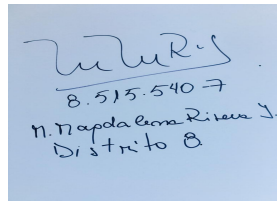 8.515.540-7
M. Magdalena Rivera Y.
Distrito 8